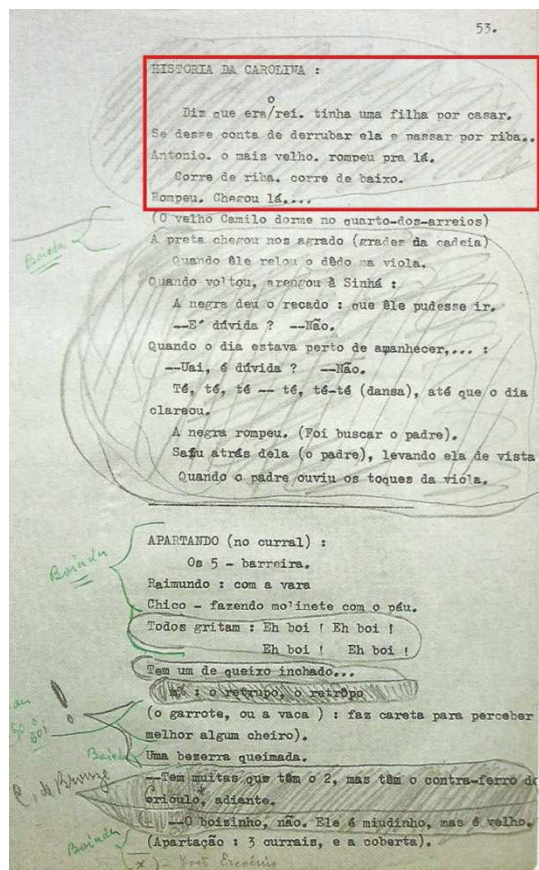 53.
HISTORIA DA CAROLINA :
o
Diz que era/rei. tinha uma filha por casar.
Se desse conta de derrubar ela e passar por riba..
Antonio. o mais velho. rompeu pra lá.
Corre de riba. corre de baixo.
Rompeu. Chegou lá....
(O velho Camilo dorme no quarto-dos-arreios)
Boiada
A preta chegou nos agrado (grades da cadeia)
Quando êle relou o dêdo na viola.
Quando voltou, arengou à Sinhá :
A negra deu o recado : que êle pudesse ir.
--E´ dúvida ? --Não.
Quando o dia estava perto de amanhecer,... :
--Uai, é dúvida ? --Não.
Té, té, té -- té, té-té (dansa), até que o dia
clareou.
A negra rompeu. (Foi buscar o padre).
Saíu atrás dela (o padre), levando ela de vista
Quando o padre ouviu os toques da viola.
APARTANDO (no curral) :
Os 5 - barreira.
Boiada
Raimundo : com a vara
Chico - fazendo molinete com o páu.
Todos gritam : Eh boi ! Eh boi !
Eh boi ! Eh boi !
Tem um de queixo inchado...
m% : o retrupo, o retrôpo
(o garrote, ou a vaca ) : faz careta para perceber
!
melhor algum cheiro).
Boiada
Uma bezerra queimada.
--Tem muitas que têm o 2, mas têm o contra-ferro do
crioulo,* adiante.
--O boisinho, não. Ele é miudinho, mas é velho.
Boiada
(Apartação : 3 currais, e a coberta).
x) - José